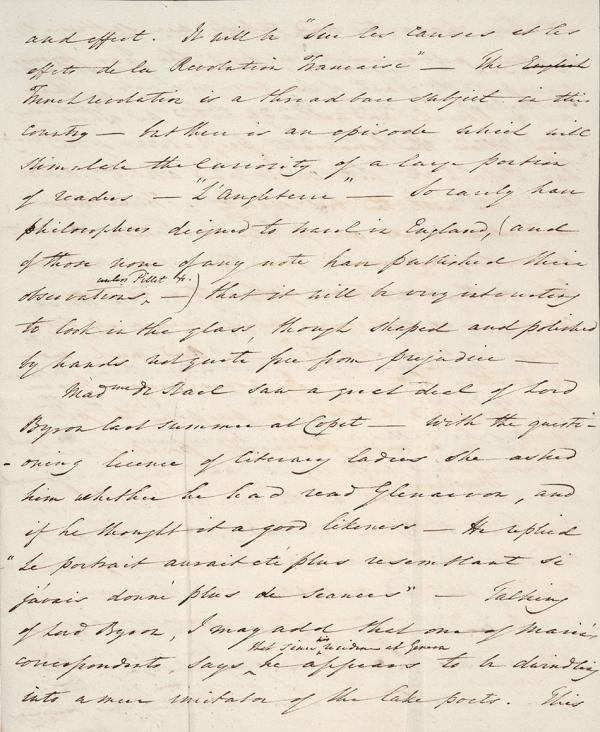 and effect. It will be "Sur les causes et les
effets de la Revolution Francaise" — The English
French revolution is a threadbare subject in this
country — but there is an episode which will
stimulate the curiosity of a large portion
of readers — "L'Angleterre" — So rarely have
philosophers deigned to travel in England, (and
of those none of any note have published their
unless Pillet &c.
observations, —) that it will be very interesting
to look in the glass, though shaped and polished
by hands not quite free from prejudice —
Madme de Stael saw a great deal of Lord
Byron last summer at Copet — With the questi-
-oning licence of literary ladies she asked
him whether he had read Glenarvon, and
if he thought it a good likeness — He replied
"Le portrait aurait eté plus resemblant si
j'avais donné plus de seances" — Talking
of Lord Byron, I may add that one of Maria's
that since his residence at Geneva
correspondents, says, he appears to be dwindling
into a mere imitator of the lake poets. This